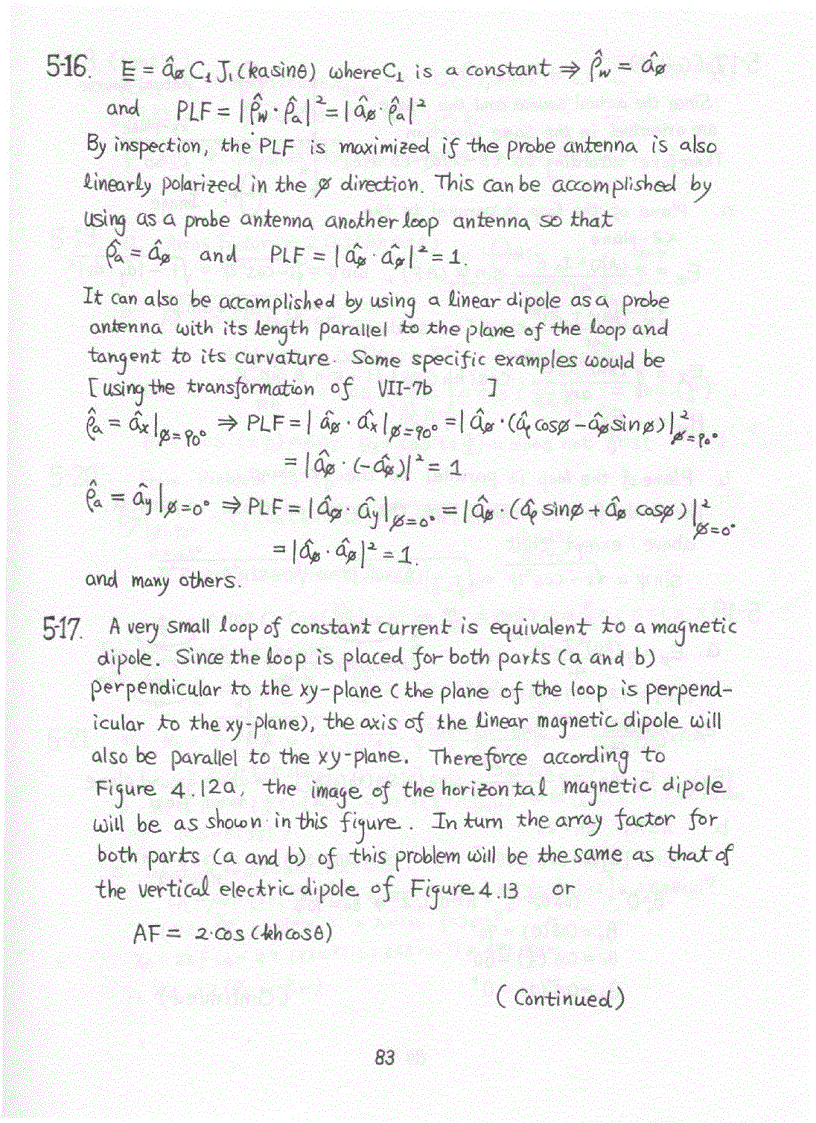 5-16. E = âø C₁ J₁(ka sinθ) where C₁ is a constant ⇒ ρ̂w = âø
and PLF = |ρ̂w · ρ̂a|² = |âø · ρ̂a|²
By inspection, the PLF is maximized if the probe antenna is also
linearly polarized in the ø direction. This can be accomplished by
using as a probe antenna another loop antenna so that
ρ̂a = âø and PLF = |âø · âø|² = 1.
It can also be accomplished by using a linear dipole as a probe
antenna with its length parallel to the plane of the loop and
tangent to its curvature. Some specific examples would be
[using the transformation of VII-7b ]
ρ̂a = âx|ø=90° ⇒ PLF = |âø · âx|ø=90° = |âø · (âρ cosø − âø sinø)|²ø=90°
= |âø · (−âø)|² = 1
ρ̂a = ây|ø=0° ⇒ PLF = |âø · ây|ø=0° = |âø · (âρ sinø + âø cosø)|²ø=0°
= |âø · âø|² = 1.
and many others.
5-17. A very small loop of constant current is equivalent to a magnetic
dipole. Since the loop is placed for both parts (a and b)
perpendicular to the xy-plane (the plane of the loop is perpend-
icular to the xy-plane), the axis of the linear magnetic dipole will
also be parallel to the xy-plane. Thereforce according to
Figure 4.12a, the image of the horizontal magnetic dipole
will be as shown in this figure. In turn the array factor for
both parts (a and b) of this problem will be the same as that of
the vertical electric dipole of Figure 4.13 or
AF = 2·cos(kh cosθ)
(Continued)
83